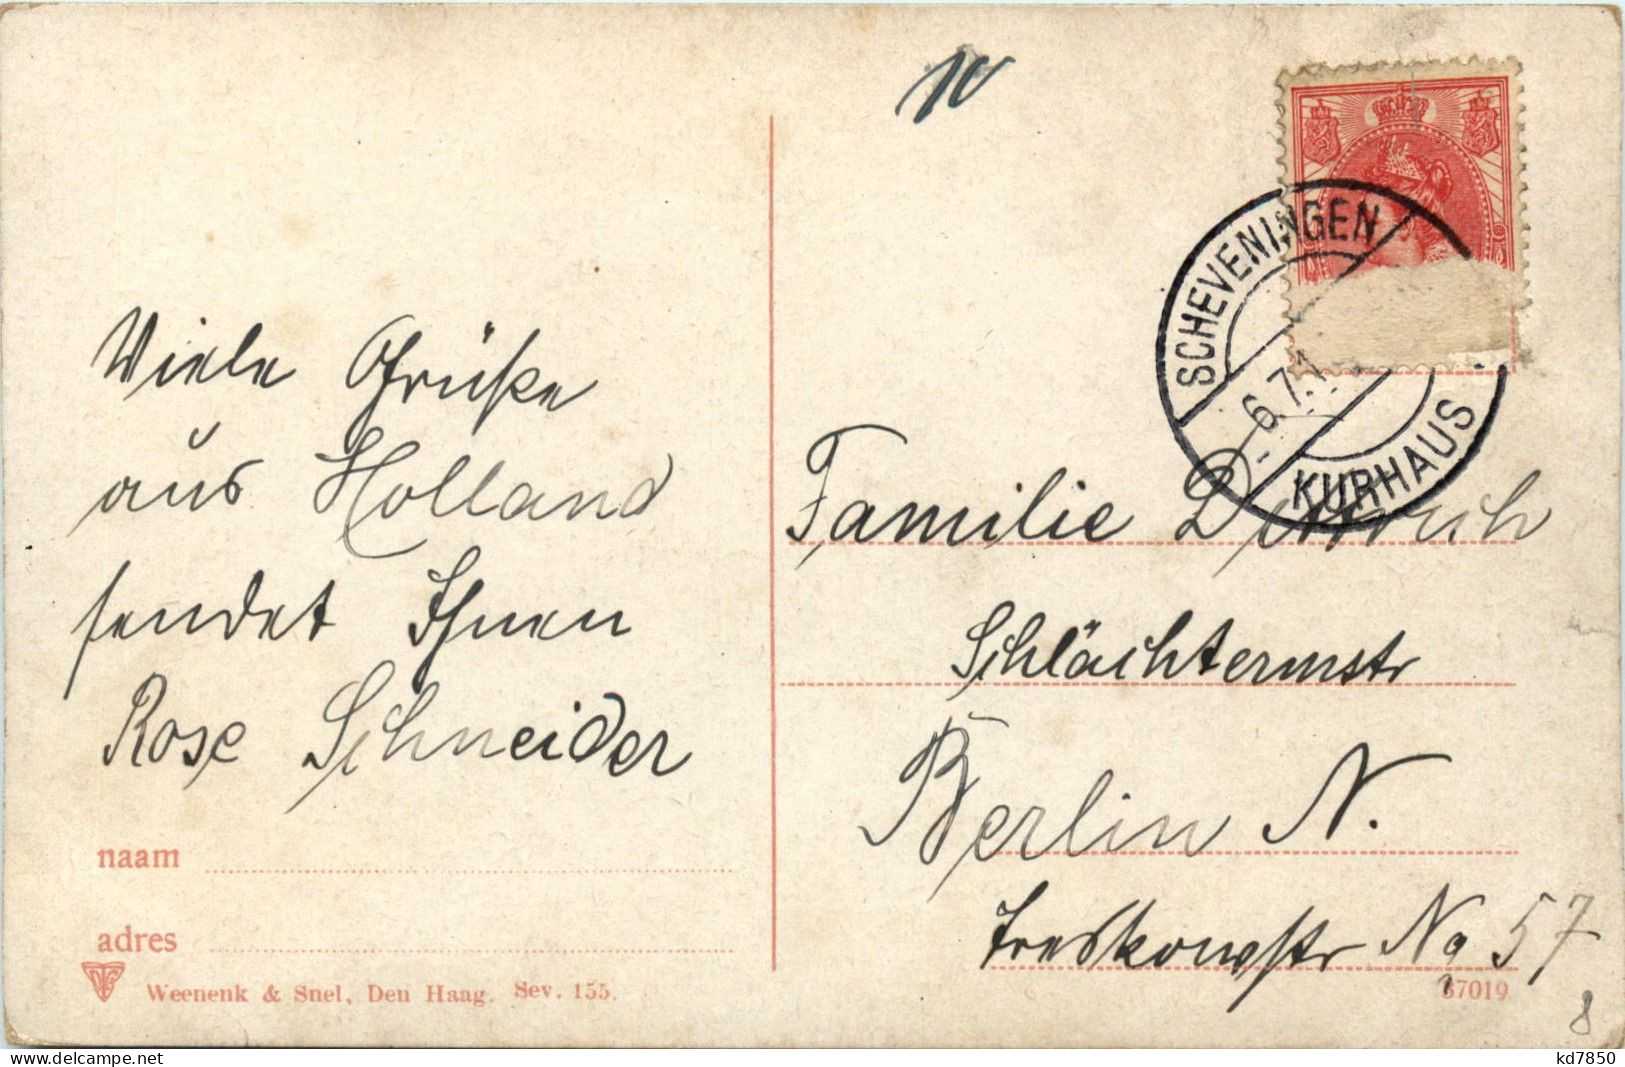 Viele Grüße
aus Holland
sendet Ihnen
Rose Schneider
naam
adres
Weenenk & Snel, Den Haag. Sev. 155.
SCHEVENINGEN
6.7.1
KURHAUS
Familie Dittrich
Schlächtermstr
Berlin N.
Treskowstr No 57
37019
8
kd7850